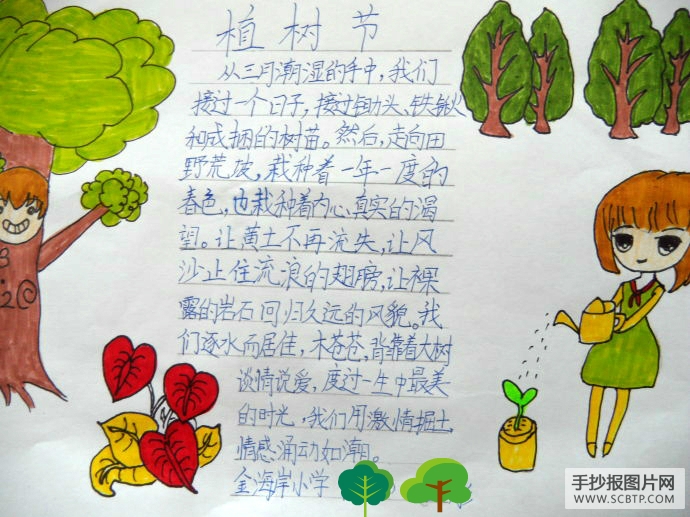 植树节
从三月潮湿的手中，我们
接过一个日子，接过锄头、铁锹
和成捆的树苗。然后，走向田
野荒坡，栽种着一年一度的
春色，也栽种着内心真实的渴
望。让黄土不再流失，让风
沙止住流浪的翅膀，让裸
露的岩石回归久远的风貌。我
们逐水而居住，木苍苍，背靠着大树
谈情说爱，度过一生中最美
的时光，我们用激情掘土，
情感涌动如潮。
金海岸小学
3.12
手抄报图片网
WWW.SCBTP.COM